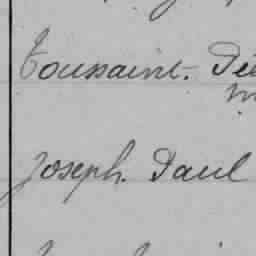 Toussaint.
Joseph. Paul